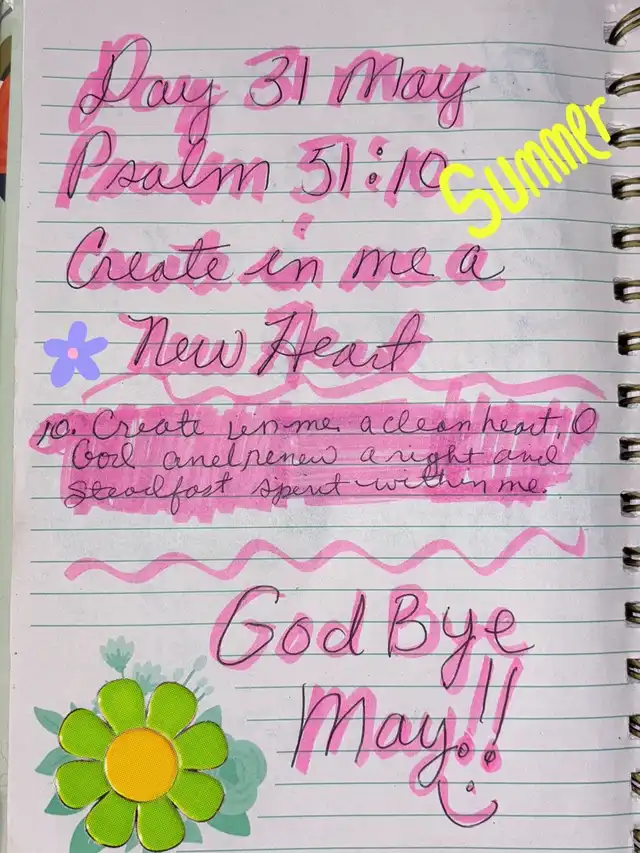 Day 31 May
Psalm 51:10
Summer
Create in me a
New Heart
10. Create in me a clean heart, O
God and renew a right and
steadfast spirit within me.
God Bye
May!!